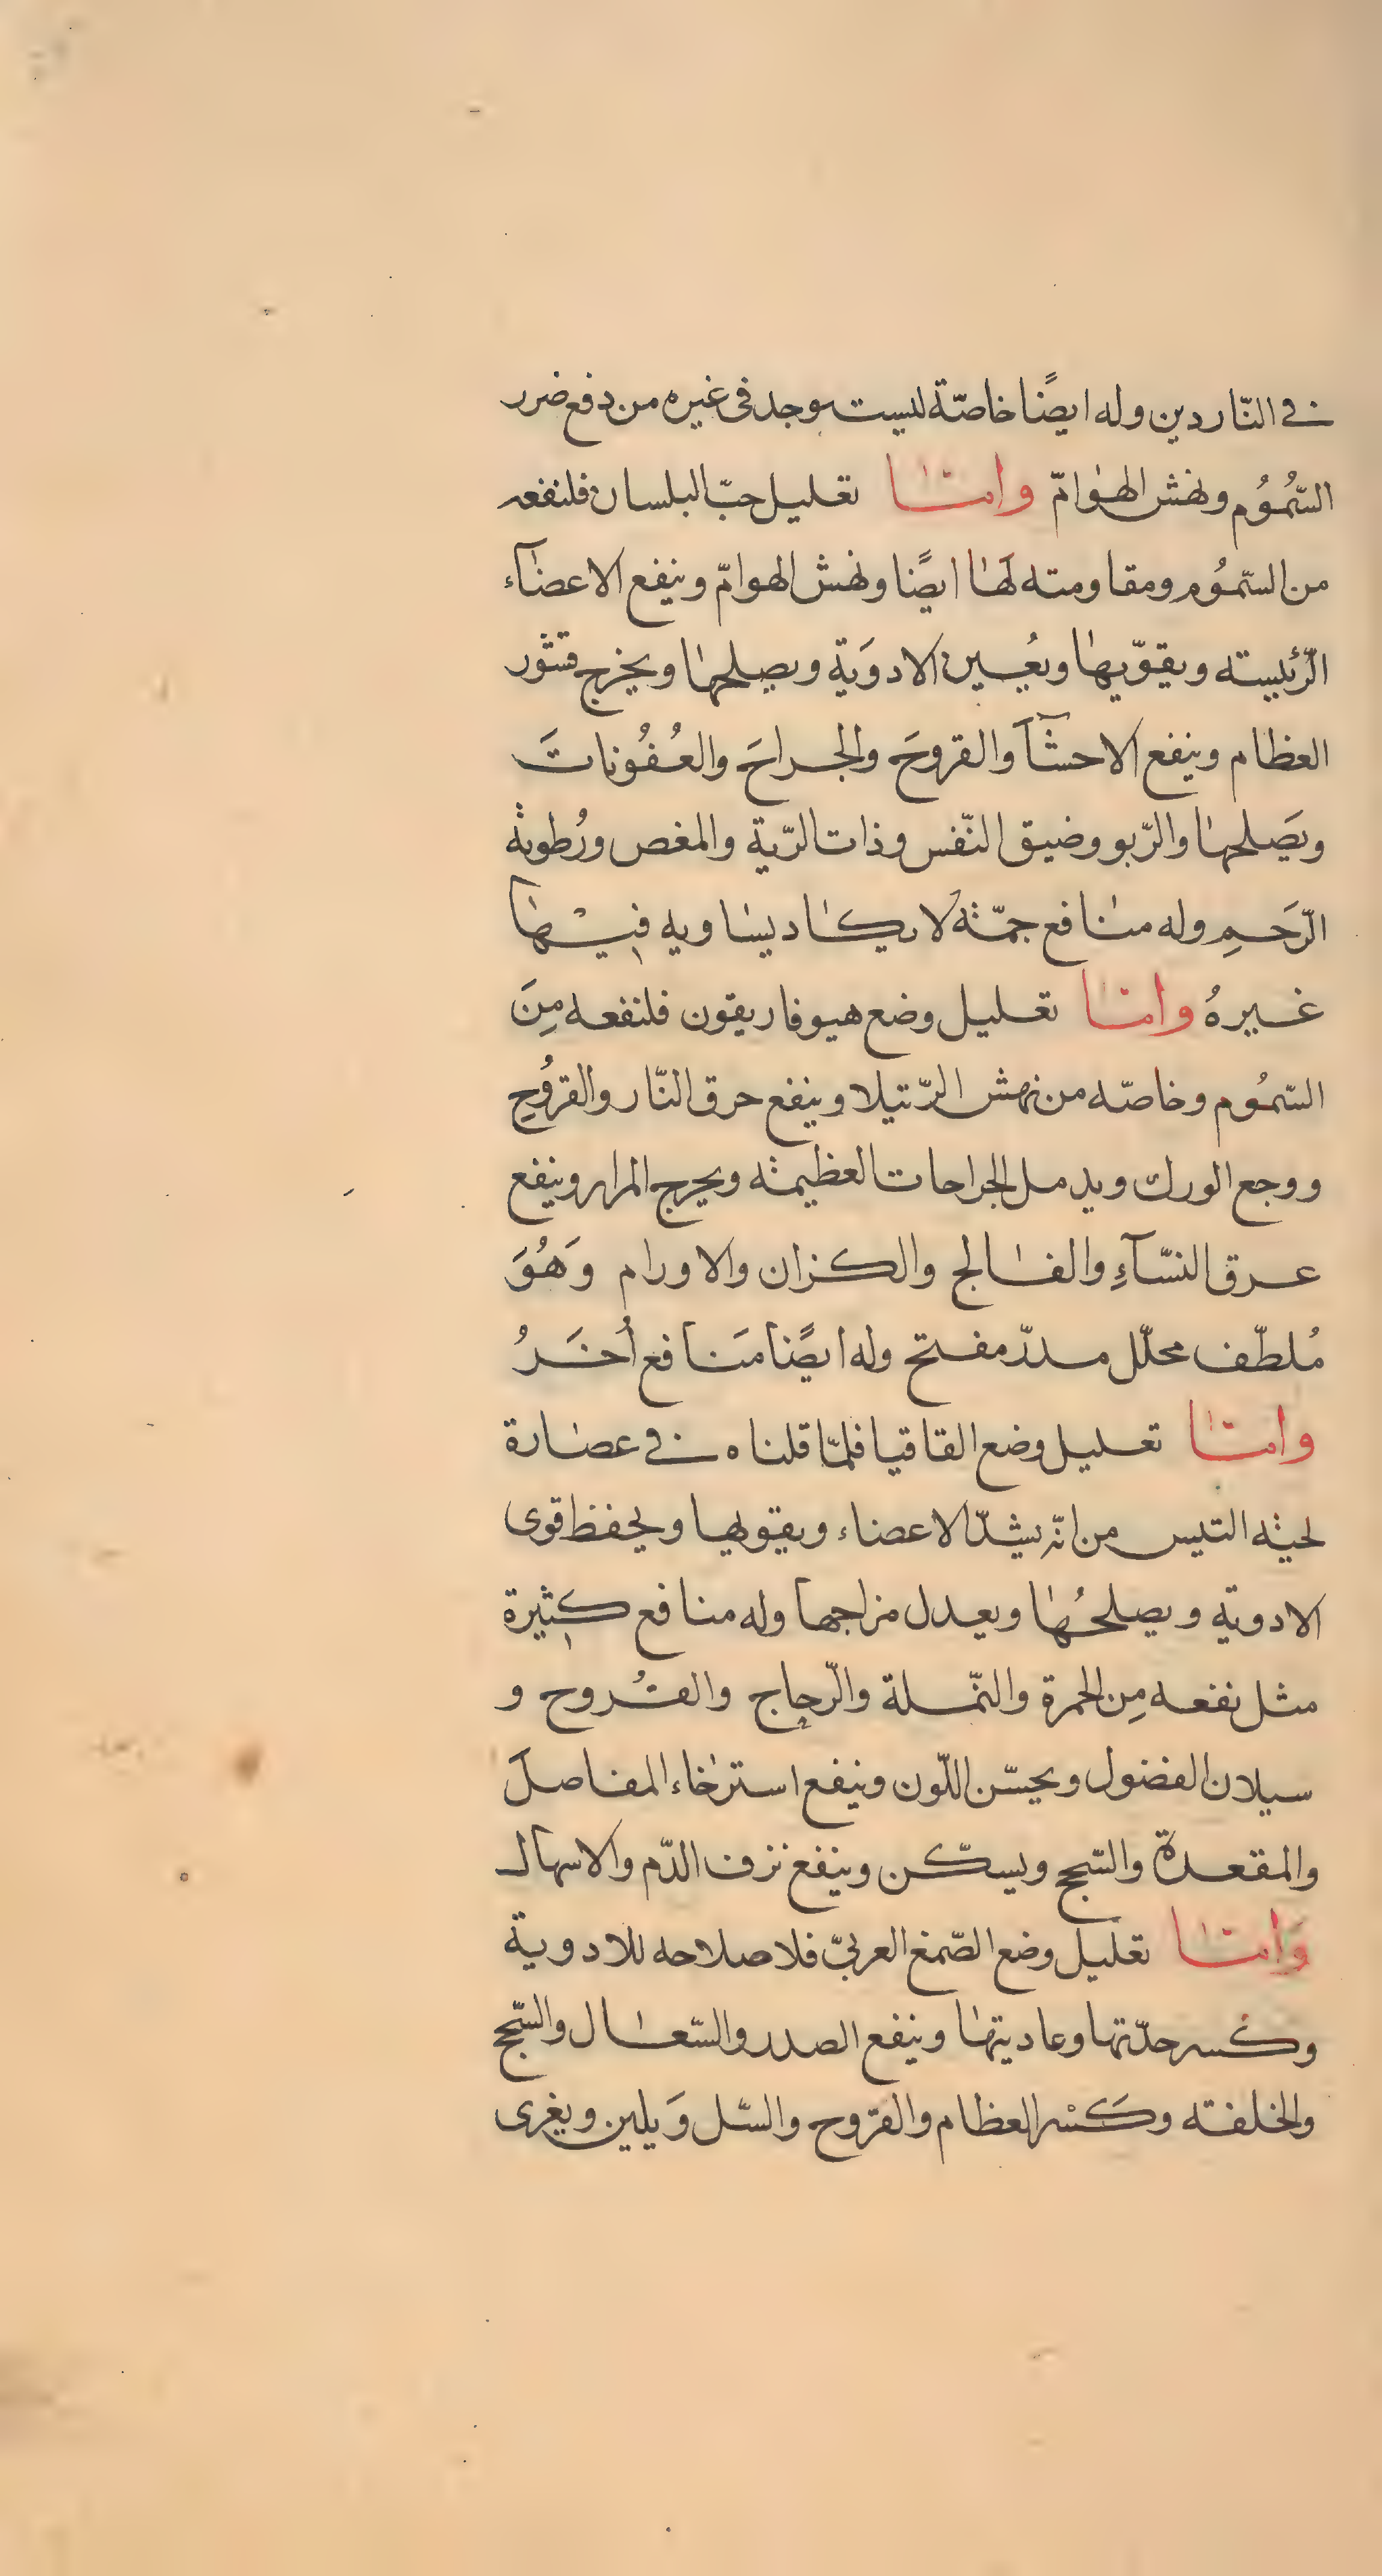 في النّاردين وله ايضًا خاصّة ليست توجد فى غيره من دفع ضرر
السُّمُوُم ونهش الهوامّ وامّا تعليل حبّ البلسان فلنفعه
من السّمُوُم ومقاومته لهَا ايضًا ونهش الهوامّ وينفع الاعضآء
الرّئيسته ويقوّيها ويُعين الادوَية ويصلحها ويخرج قشور
العظام وينفع الاحشآَ والقروحَ والجراحَ والعُفُوناتَ
ويَصلحها والرّبو وضيق النّفس وذات الرّية والمغص ورُطوبة
الرّحَمِ وله منافع جمّة لا يكاد يساويه فيْها
غيرهُ وامّا تعليل وضع هيوفاريقون فلنفعه مِنَ
السّمُوُم وخاصّه من نهش الرّتيلا وينفع حرق النّار والقروُح
ووجع الورك ويدمل الجراحات العظيمة ويخرج المرار وينفع
عرق النسّآءِ والفالج والكزان والاورام وَهُوَ
مُلطّف محلّل مدرّ مفتح وله ايضًا مَنافع أُخَرُ
وامّا تعليل وضع القاقيا فلمّا قلناه في عصارة
لحية التيس من انّه يشدّ الاعضاء ويقويها ويحفظ قوى
الادوية ويصلحُها ويعدل مزاجها وله منافع كثيرة
مثل نفعه مِن الحمرة والنّملة والرّجاج والقُروح و
سيلان الفضول ويحسّن اللّون وينفع استرخاء المفاصلَ
والمقعدة والسّحج ويسكّن وينفع نزف الدّم والاسهال
وَامّا تعليل وضع الصّمغ العربيّ فلاصلاحه للادوية
وكسر حدّتها وعاديتها وينفع الصدر والسّعال والسّحج
والخلفته وكَسْر العظام والقرّوح والسّل وَيلين ويغرى